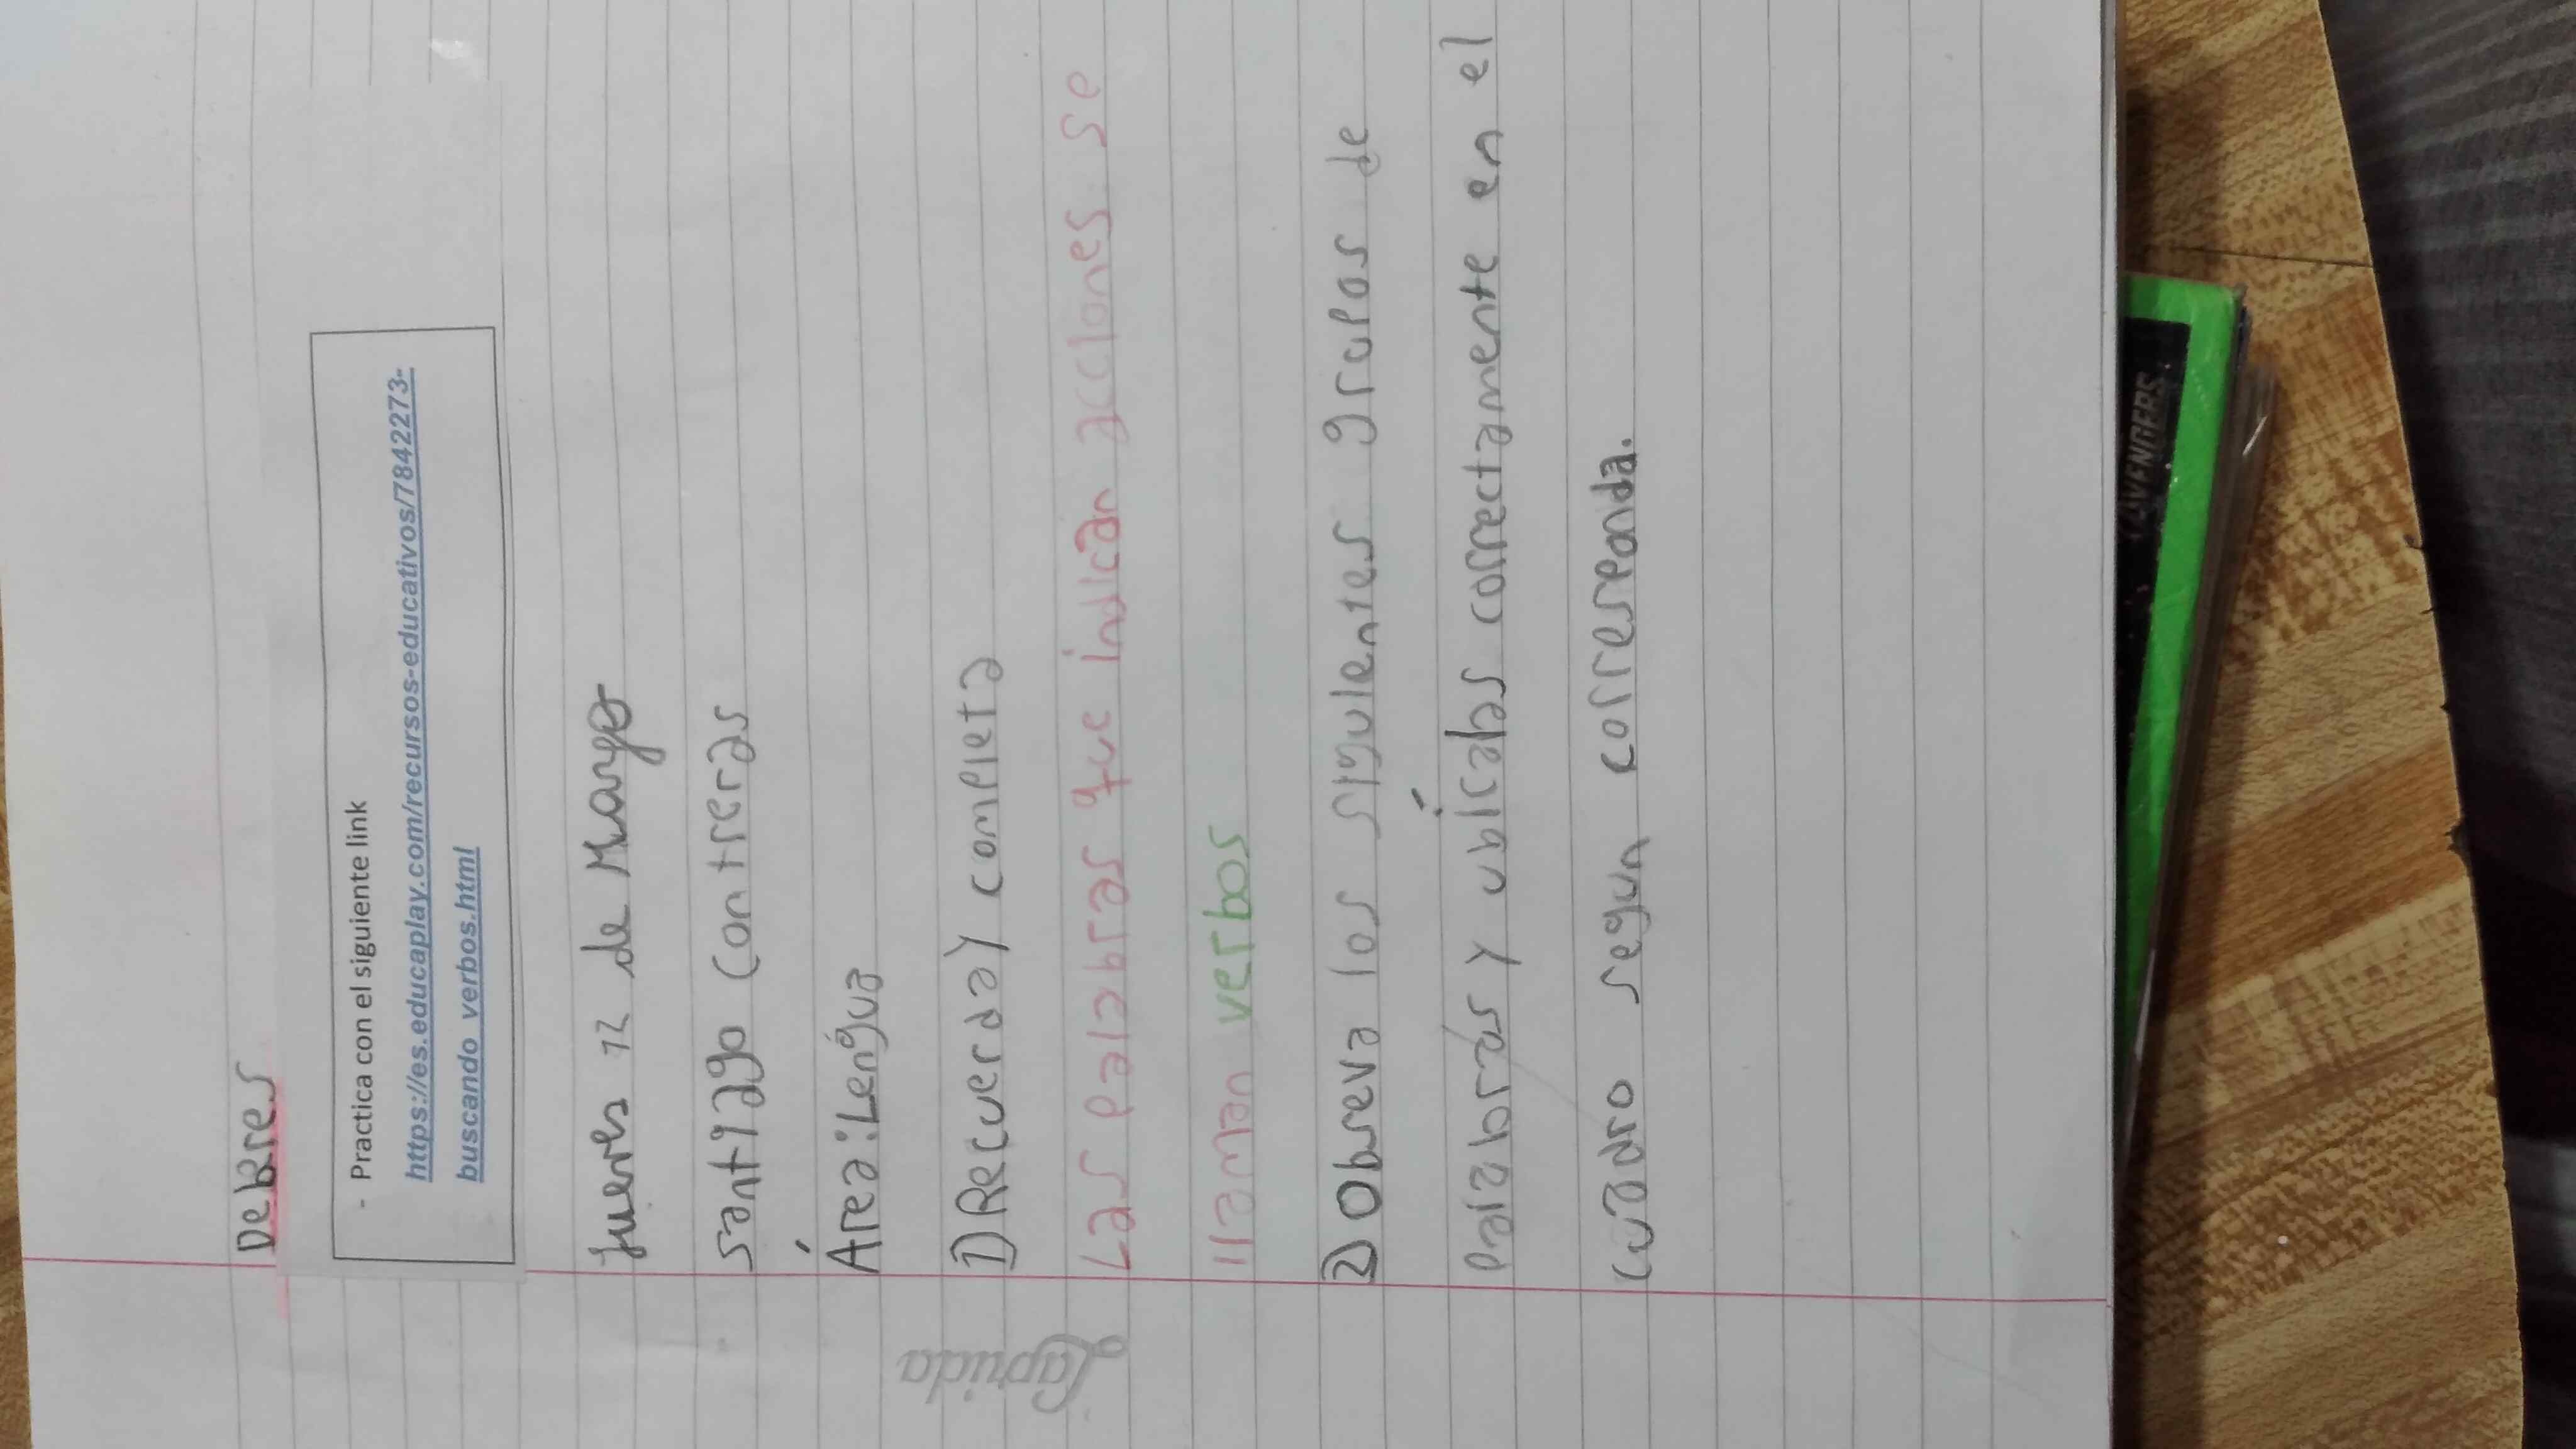 DeBRes
- Practica con el siguiente link
https://es.educaplay.com/recursos-educativos/7842273-
buscando_verbos.html
Jueves 12 de Maryo
santiago contreras
Área: Lengua
1) Recuerda y completa
Las palabras que indican acciones se
llaman verbos
2) Obsreva los siguientes grupos de
palabras y ubícalas correctamente en el
cuadro segun corresponda.
Laprida
AVENGERS